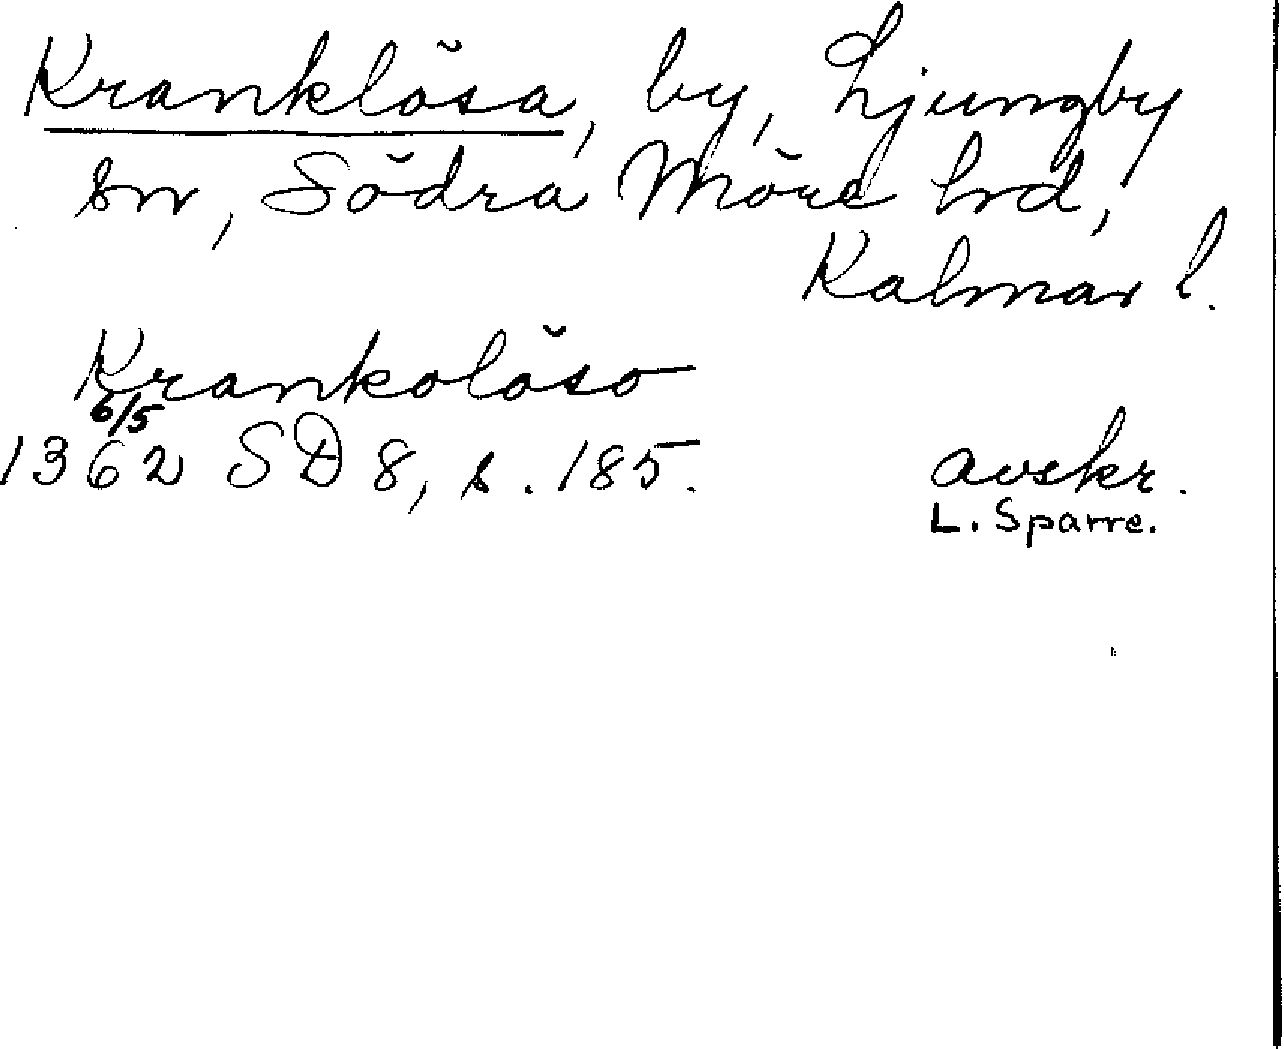 Kranklösa, by, Ljungby
sn, Södra Möre hd,
Kalmar l.
Krankolöso
6/5
1362 SD 8, s. 185. avskr.
L. Sparre.